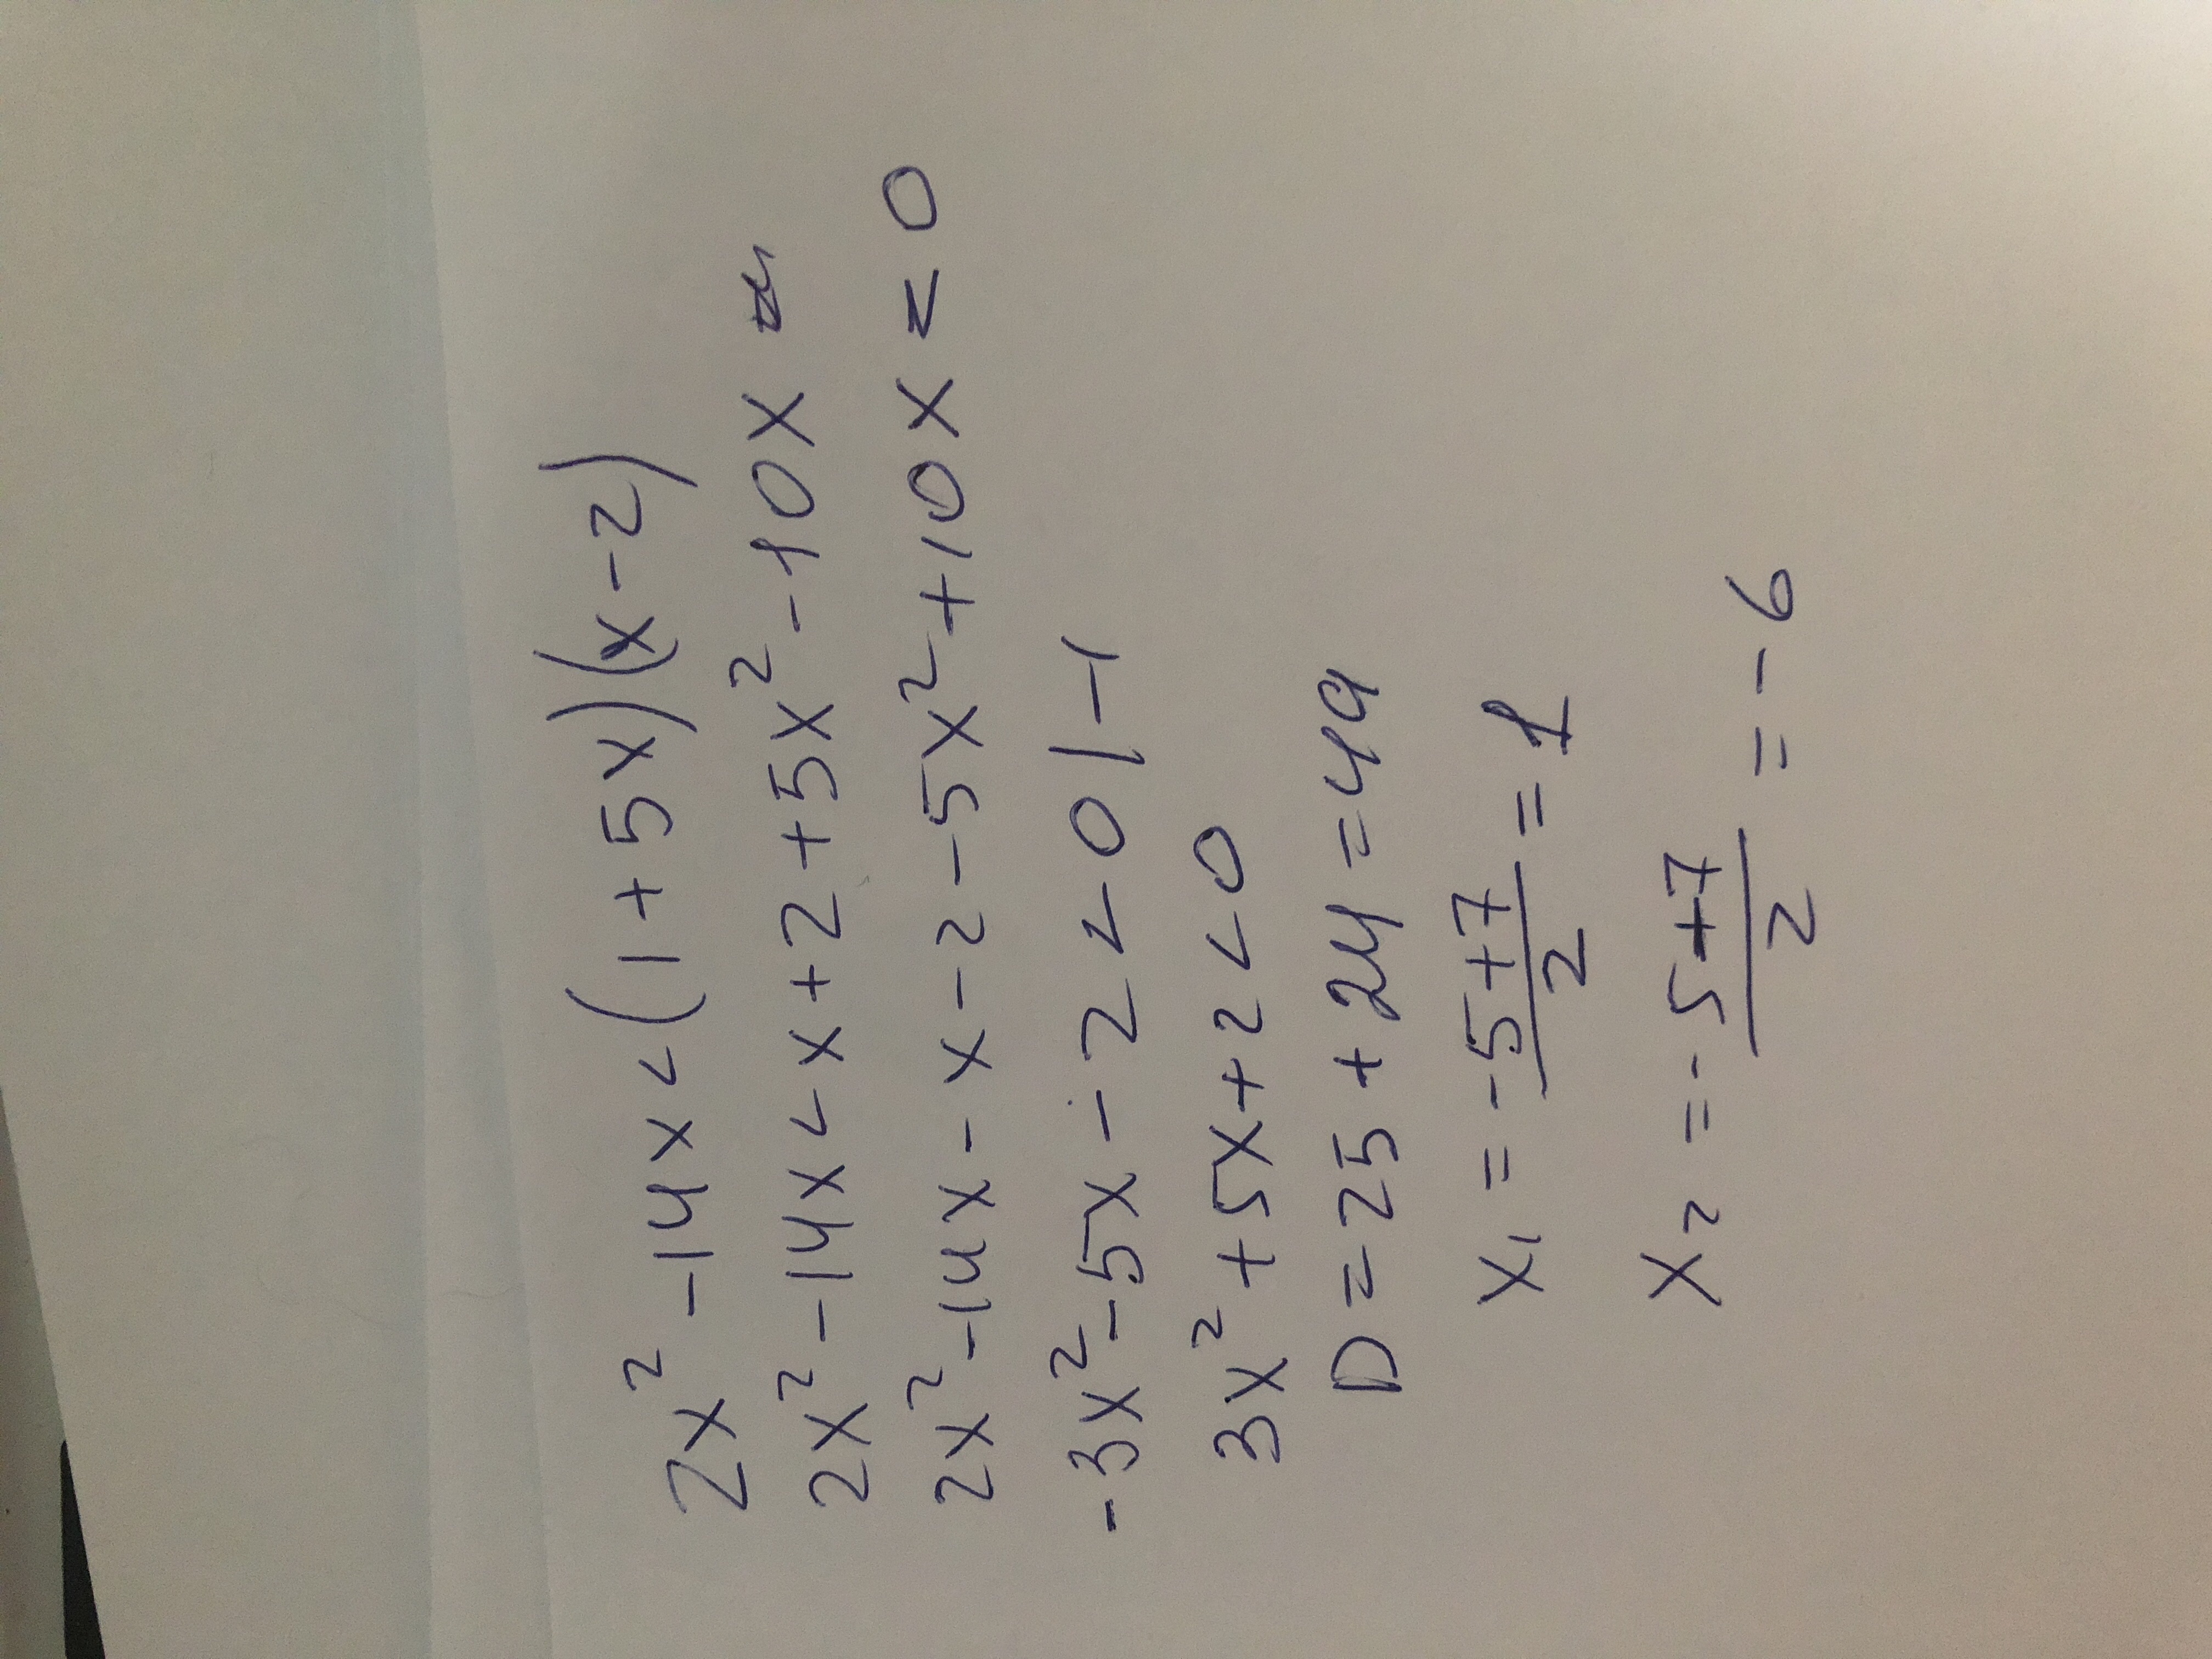 2x² -14x < (1+5x)(x-2)
2x² -14x < x+2+5x² -10x
2x² -14x - x -2 -5x² +10x < 0
-3x² -5x -2 < 0 | -1
3x² +5x+2 < 0
D = 25 + 24 = 49
x₁ = -5+7/2 = 1
x₂ = -5+7/2 = -6